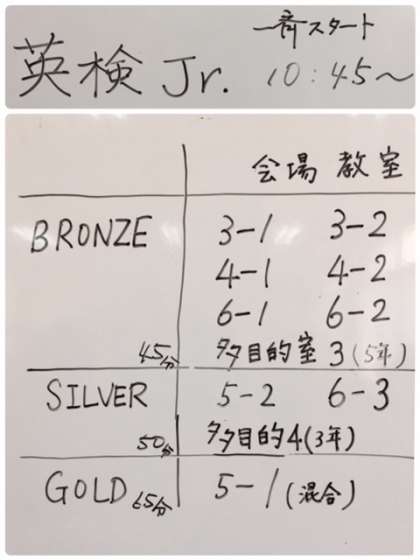 一斉スタート
英検 Jr. 10:45~
会場 教室
BRONZE 3-1 3-2
4-1 4-2
6-1 6-2
45分 多目的室 3 (5年)
SILVER 5-2 6-3
50分 多目的4(3年)
GOLD 65分 5-1 (混合)